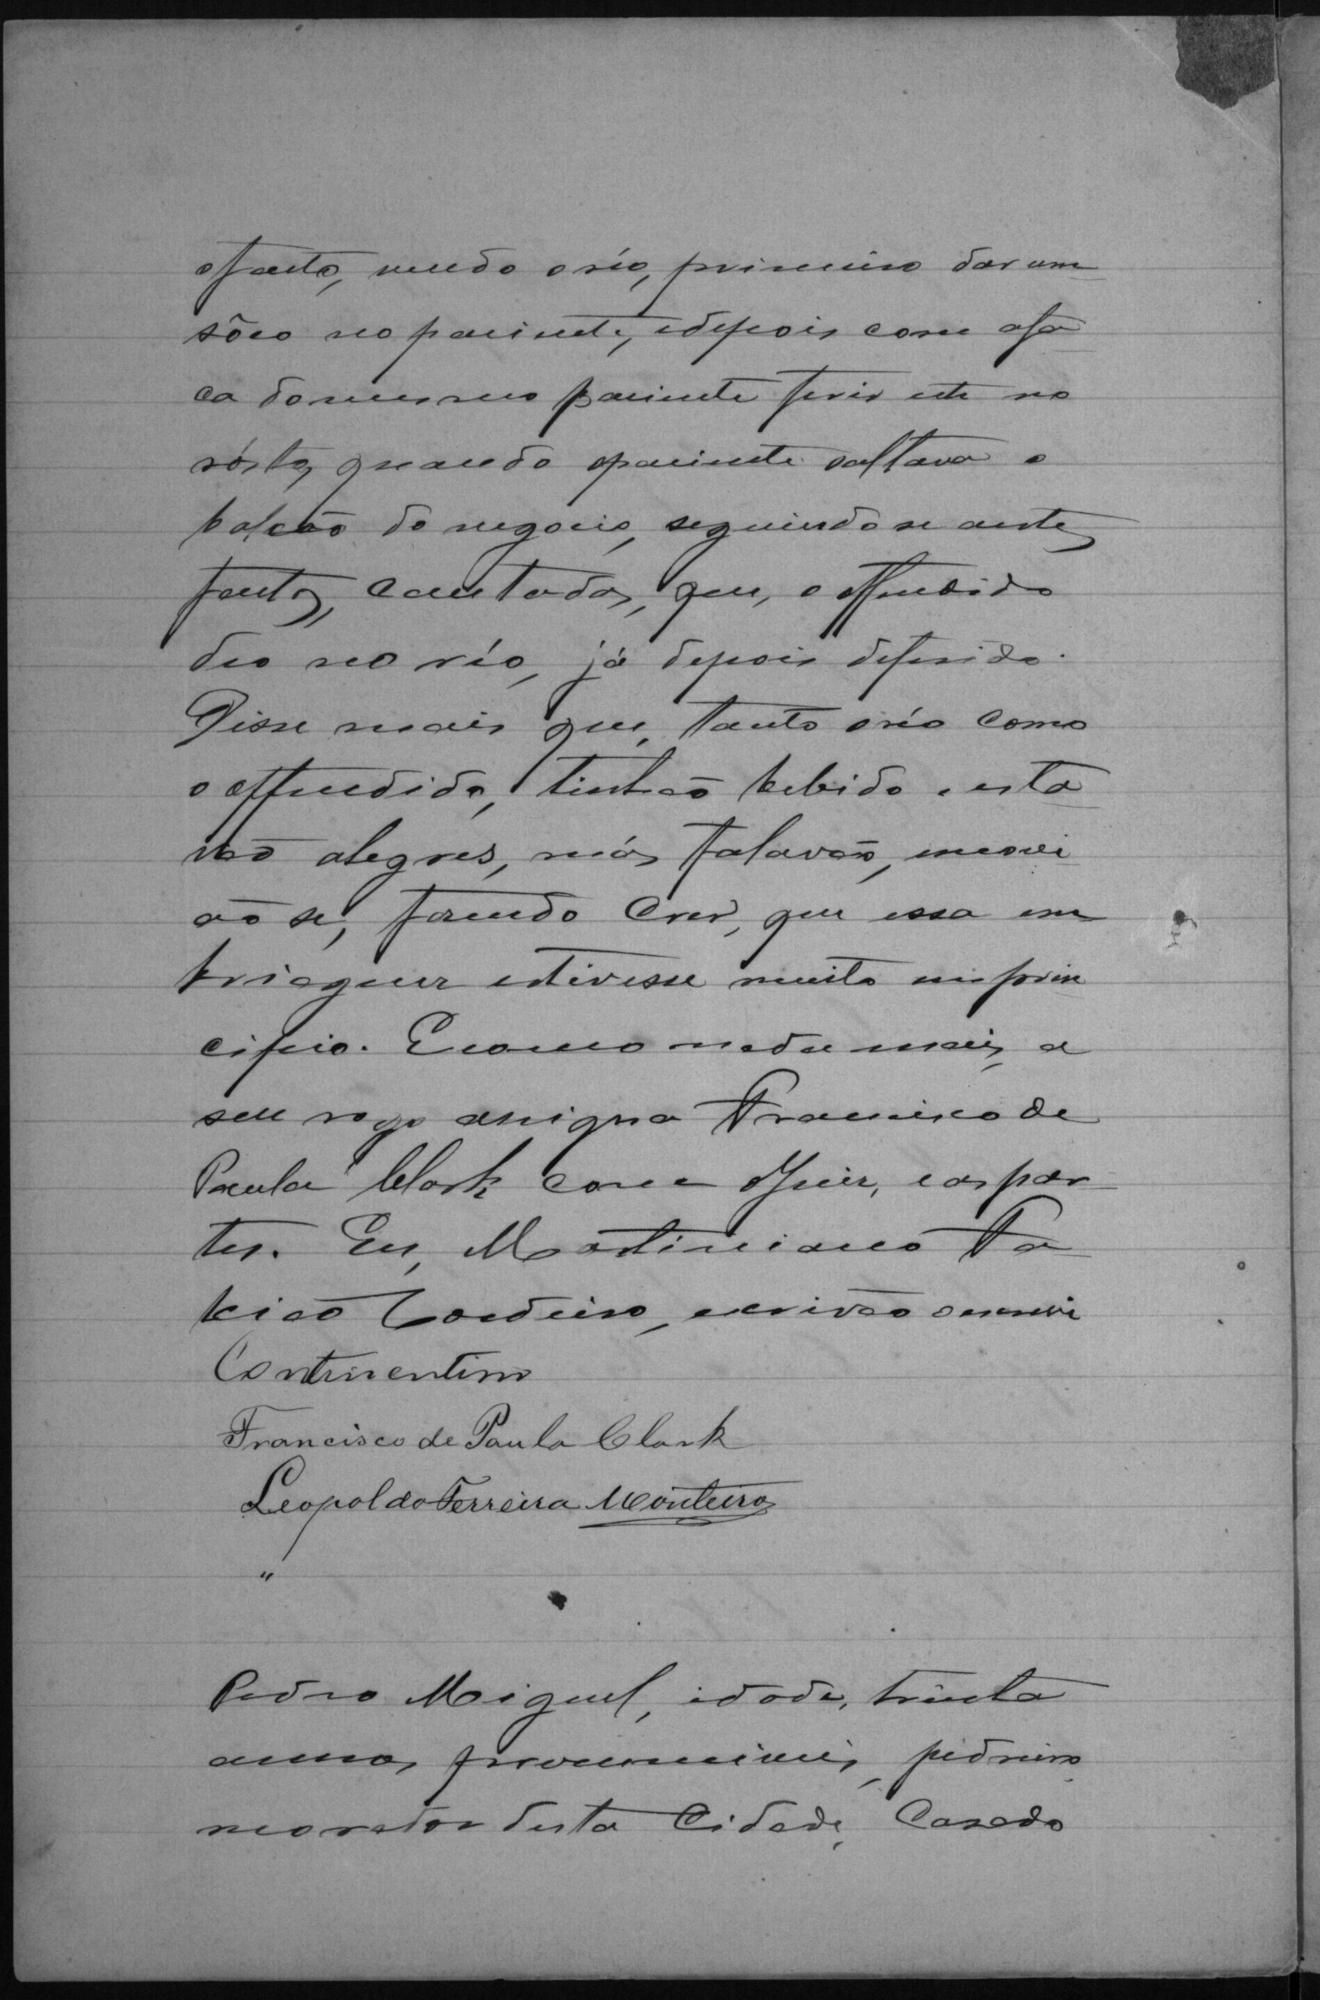 o facto, vendo o réo, primeiro dar um
sôco no paciente, e depois com a fa
ca do mesmo paciente ferir este no
rósto, quando o paciente saltava o
balcão do negocio, seguindo se a este
facto, cantadas, que, o offendido
deo no réo, já depois de ferido.
Disse mais que, tanto o réo como
o offendido, tinhão bebido e esta
vão alegres, más falavão, movi
ão se, fasendo crer, que essa em
briaguez estivesse muito em prin
cipio. E como nada mais, a
seu rogo assigna Francisco de
Paula Clark com o Juiz, e as par
tes. Eu, Martiniano Fa
bião Cordeiro, escrivão o escrevi
Continentino
Francisco de Paula Clark
Leopoldo Ferreira Monteiro
"
Pedro Miguel, idade, trinta
annos, pedreiro
morador desta Cidade, Casado